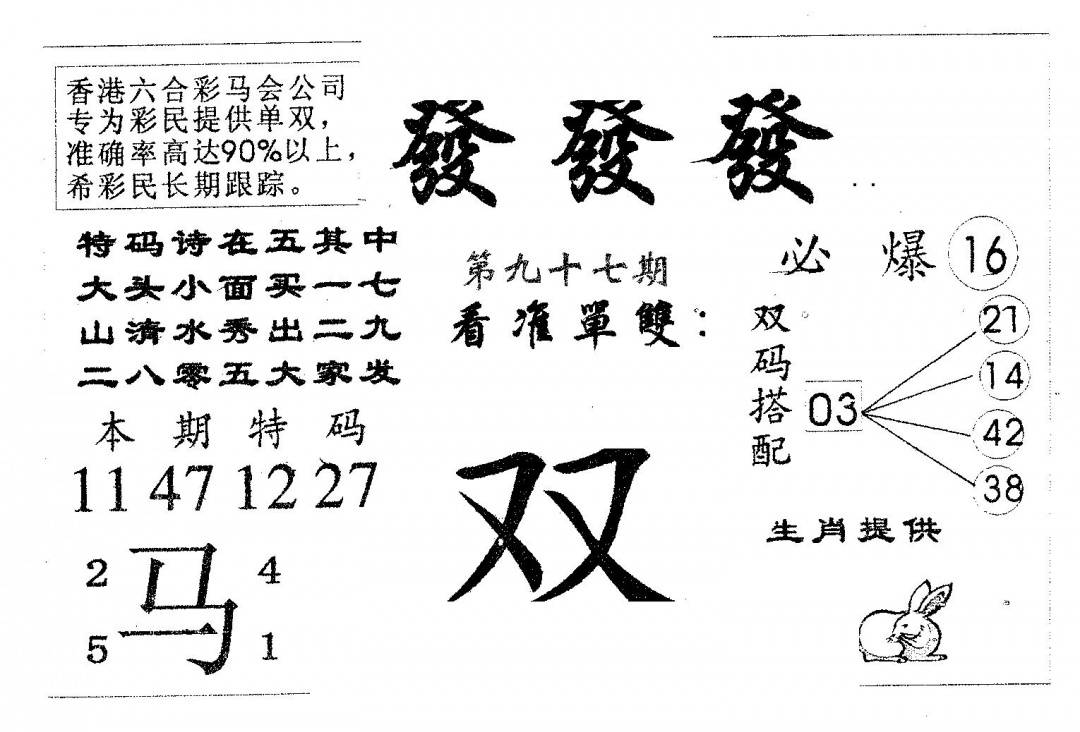 香港六合彩马会公司
专为彩民提供单双，
准确率高达90%以上，
希彩民长期跟踪。
發發發
特码诗在五其中
大头小面买一七
山清水秀出二九
二八零五大家发
本期特码
11 47 12 27
2 马 4
5 1
第九十七期
看准單雙：
双
必爆 16
双码搭配 03
21
14
42
38
生肖提供